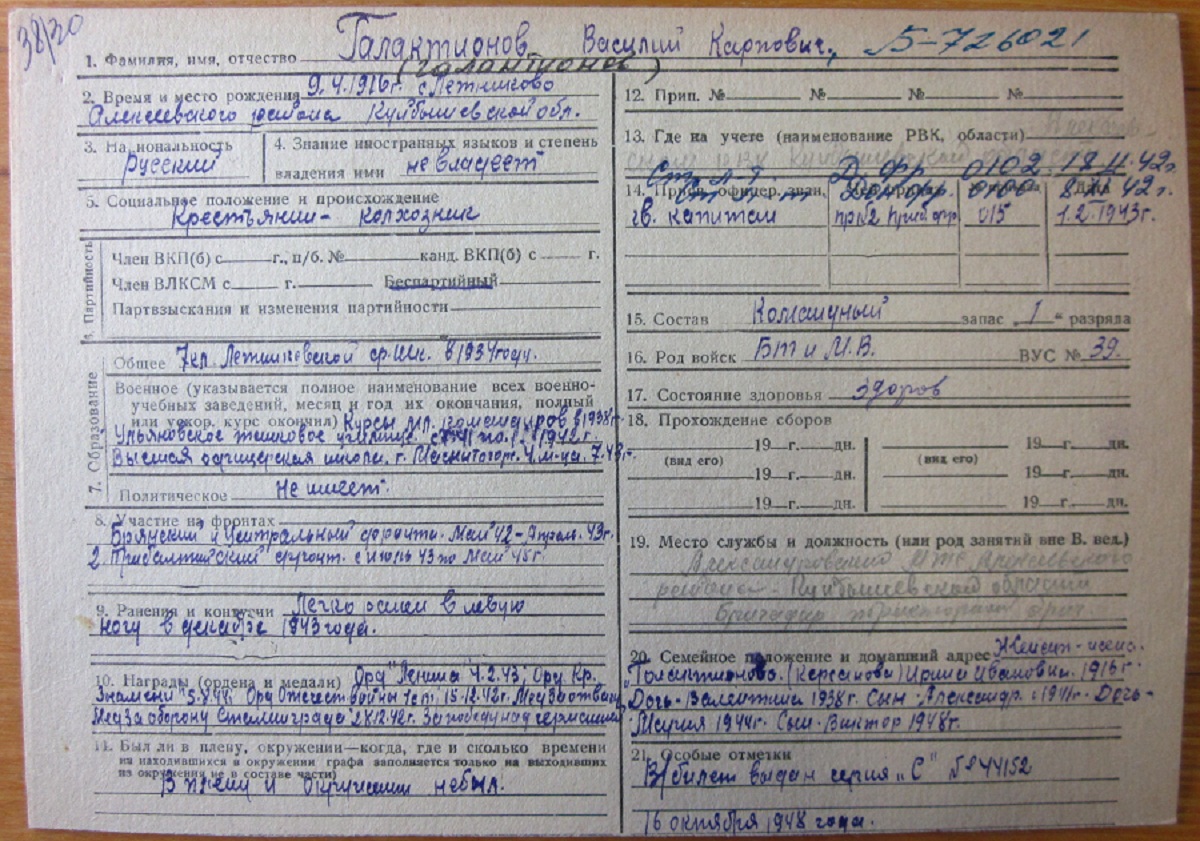 38/20
1. Фамилия, имя, отчество Галактионов Василий Карпович, Б-726021
(Галантионов)
2. Время и место рождения 9.4.1916г. с. Летниково
Алексеевского района Куйбышевской обл.
3. На иональность 4. Знание иностранных языков и степень
Русский владения ими не владеет
5. Социальное положение и происхождение
Крестьянин - колхозник
6. Партийность
Член ВКП(б) с г., п/б. № канд. ВКП(б) с г.
Член ВЛКСМ с г. Беспартийный
Партвзыскания и изменения партийности
7. Образование
Общее 7кл. Летниковской ср. шк. в 1934 году.
Военное (указывается полное наименование всех военно-
учебных заведений, месяц и год их окончания, полный
или ускор. курс окончил) Курсы мл. командиров в 1938г.
Ульяновское танковое училище 1942г.
Высшая офицерская школа г. Магнитогорск 4 м-ца. 7.43г.
Политическое Не имеет.
8. Участие на фронтах
Брянский и Центральный фронты. Май 42 - Апрель. 43г.
2 Прибалтийский фронт. с июль 43 по Май 45г.
9. Ранения и контузии Легко ранен в левую
ногу в декабре 1943 года.
10. Награды (ордена и медали) Орд "Ленина" 4.2.43; Орд. Кр.
Знамени 5.8.44; Орд Отечест войны 15-12-42г.
Мед за оборону Сталинграда 22.12.42г. За победу над германией
11. Был ли в плену, окружении—когда, где и сколько времени
(на находившихся в окружении графа заполняется только на выходивших
из окружения не в составе части)
В плену и окружении не был.
12. Прип. № № № №
13. Где на учете (наименование РВК, области)
Куйбышевской области
Ст. Л-т Д. Фр 0102 18.11.42г.
14. Присв. офицер. зван.
гв. капитан 015 1.2.1943г.
15. Состав Командный запас „1“ разряда
16. Род войск БТ и М.В. ВУС № 39.
17. Состояние здоровья здоров
18. Прохождение сборов
19 г. дн. 19 г. дн.
(вид его) (вид его)
19 г. дн. 19 г. дн.
19 г. дн. 19 г. дн.
19. Место службы и должность (или род занятий вне В. вед.)
Александровский МТС Алексеевского
района Куйбышевской области
Бригадир тракторной бриг.
20. Семейное положение и домашний адрес Женат - жена
Галактионова (Кирсанова) Ирина Ивановна. 1916г
Дочь - Валентина 1938г. Сын - Александр. 1941г - Дочь -
Мария 1944г. Сын - Виктор 1948г.
21. Особые отметки
В/билет выдан серия "С" № 944152
16 октября 1948 года.